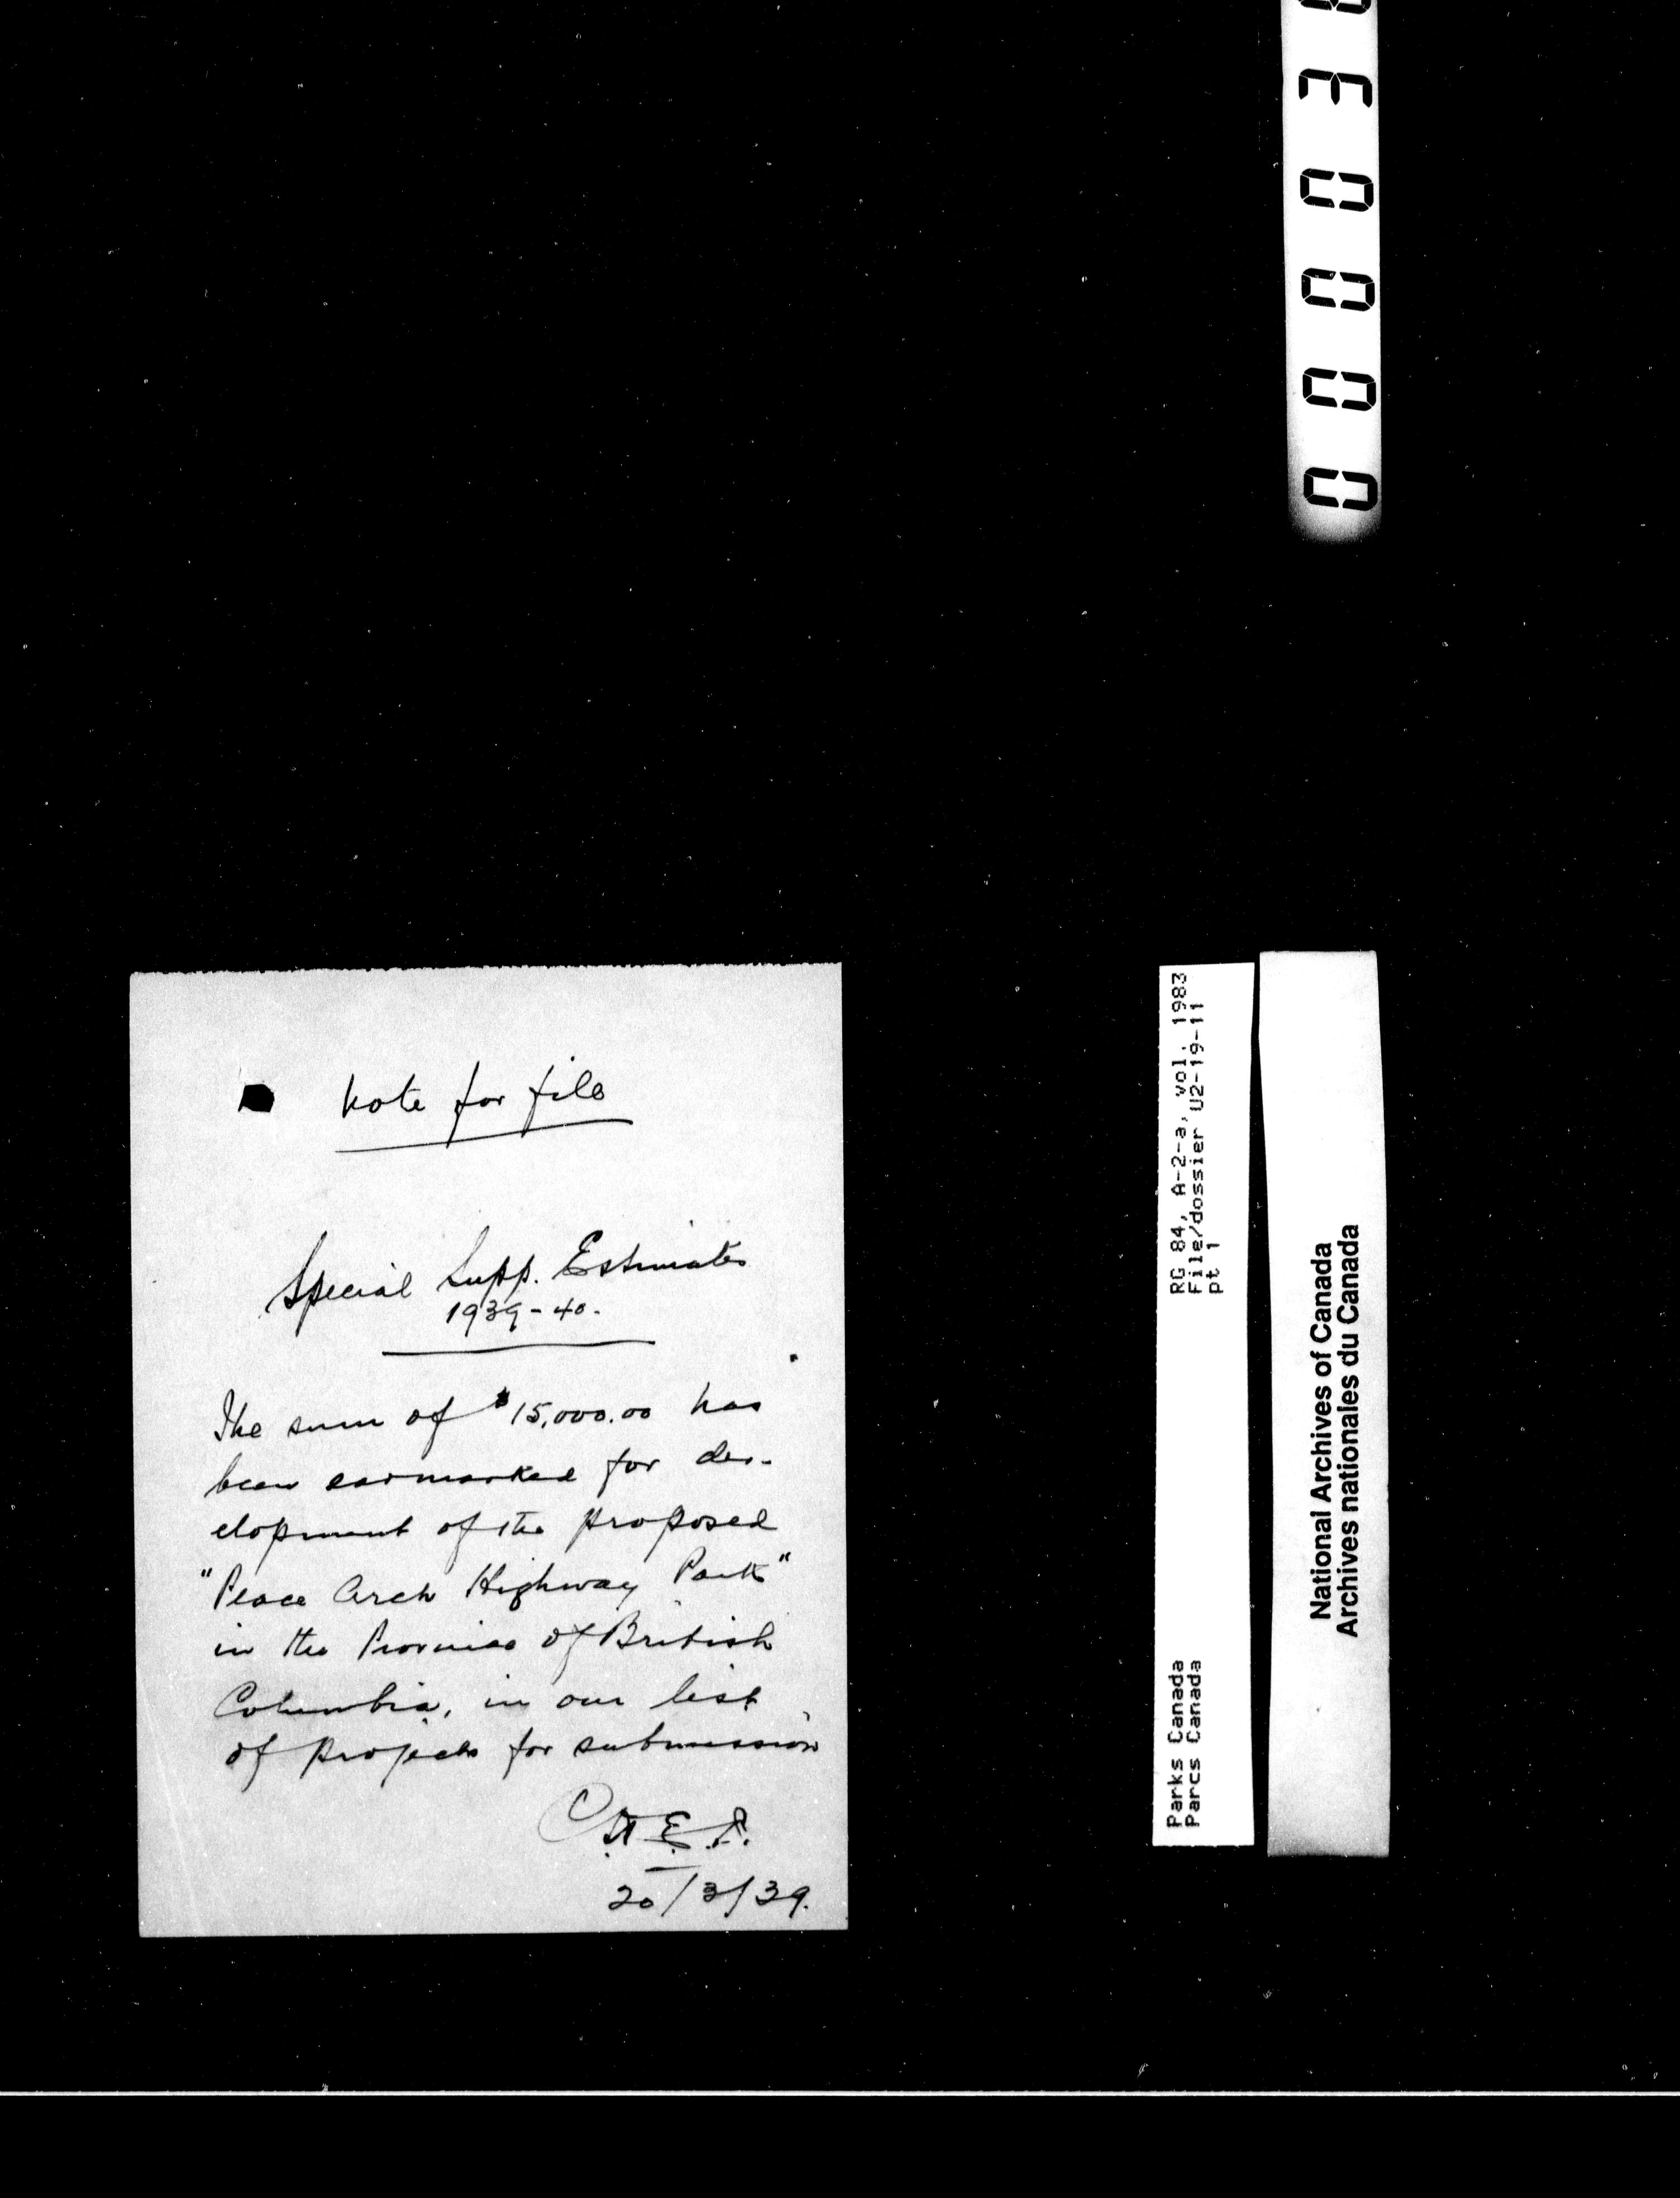 Note for file
Special Supp. Estimates
1939-40.
The sum of $15,000.00 has
been earmarked for dev-
elopment of the proposed
"Peace Arch Highway Park"
in the Province of British
Columbia, in our list
of projects for submission
20/3/39.
RG 84, A-2-a, vol. 1983
File/dossier U2-19-11
pt 1
Parks Canada
Parcs Canada
National Archives of Canada
Archives nationales du Canada
00003